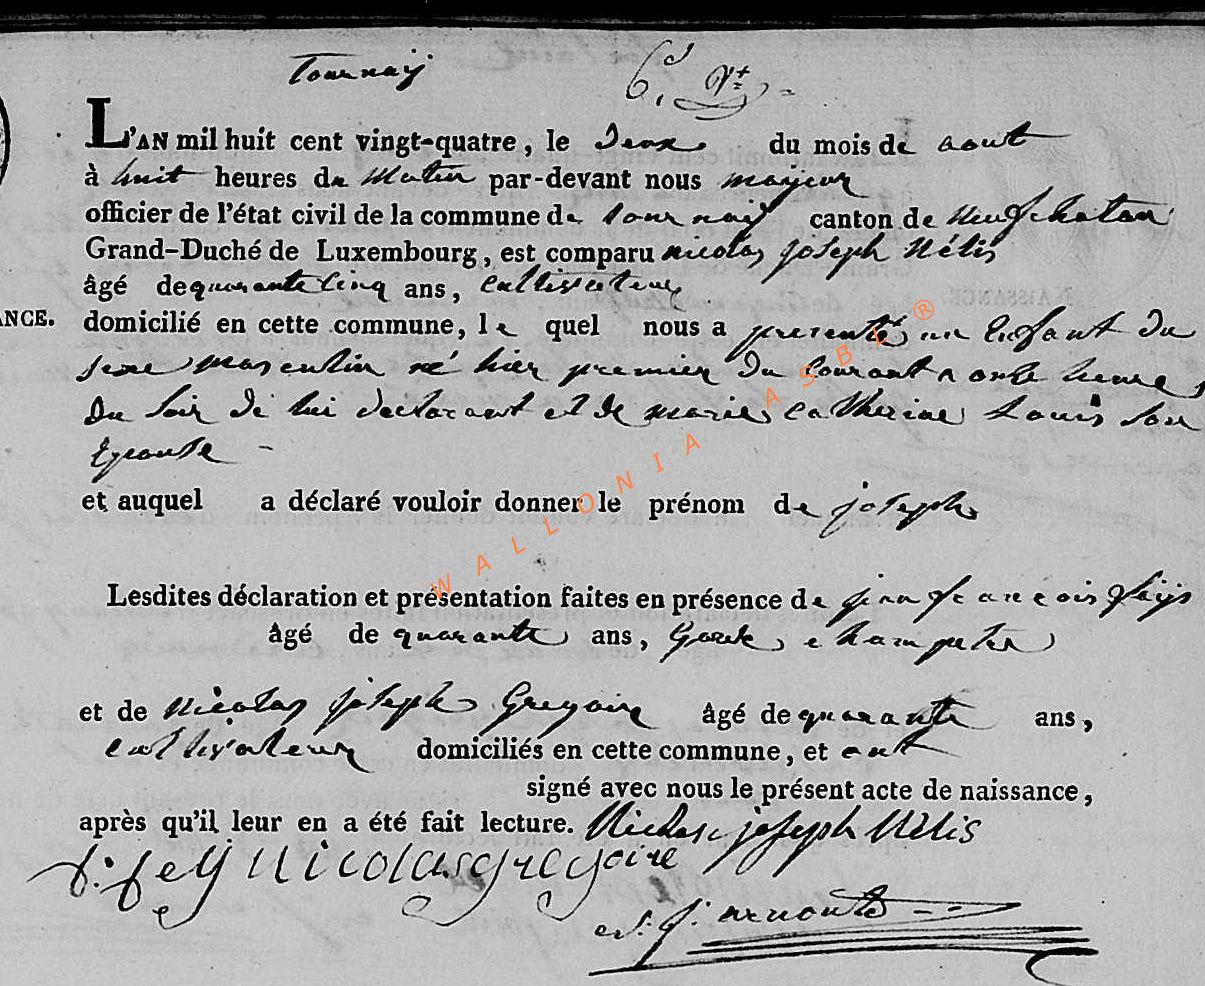 Tournay
L'AN mil huit cent vingt-quatre, le deux du mois de aout
à huit heures du Matin par-devant nous mayeur
officier de l'état civil de la commune de tournay canton de Neufchateau
Grand-Duché de Luxembourg, est comparu nicolas joseph Nélis
âgé de quarante cinq ans, cultivateur
ANCE. domicilié en cette commune, le quel nous a presenté un Enfant du
sexe masculin né hier premier du courant a onze heures
du soir de lui declarant et de marie catherine Louis son
Epouse -
et auquel a déclaré vouloir donner le prénom de joseph
Lesdites déclaration et présentation faites en présence de jean francois
âgé de quarante ans, Garde champetre
et de Nicolas joseph Gregoire âgé de quarante ans,
cultivateur domiciliés en cette commune, et ont
signé avec nous le présent acte de naissance,
après qu'il leur en a été fait lecture. Nicolas joseph Nélis
Nicolas gregoire
arnould
WALLONIA ASBL ®